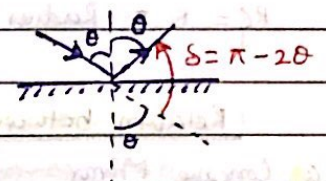 θ θ
δ = π - 2θ
θ